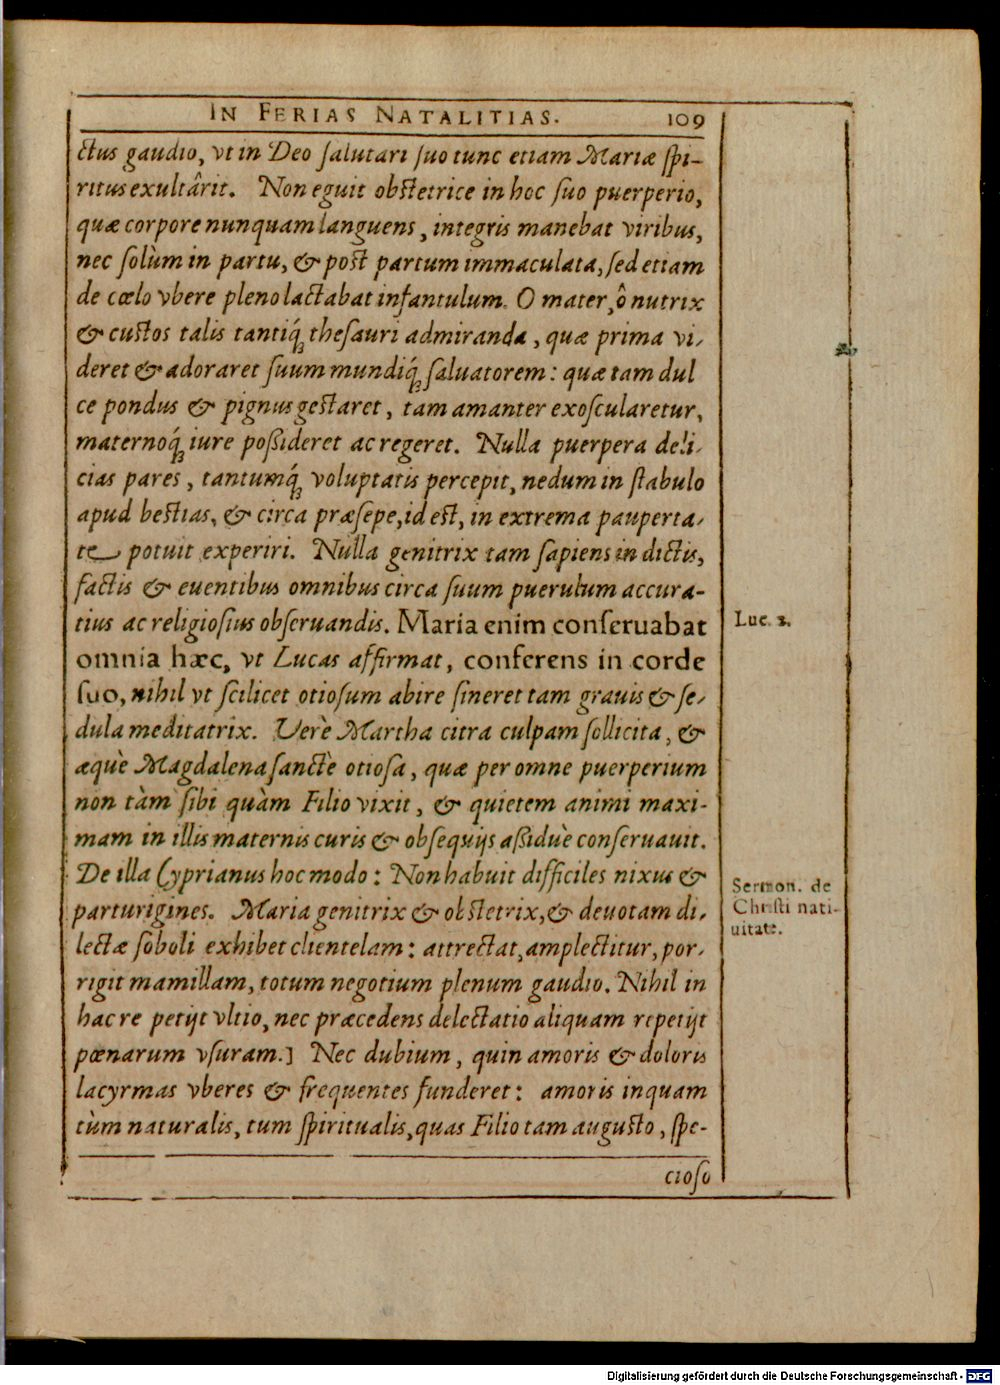 IN FERIAS NATALITIAS. 109
ctus gaudio, vt in Deo salutari suo tunc etiam Mariæ spi-
ritus exultârit. Non eguit obstetrice in hoc suo puerperio,
quæ corpore nunquam languens, integris manebat viribus,
nec solùm in partu, & post partum immaculata, sed etiam
de cœlo vbere pleno lactabat infantulum. O mater, ô nutrix
& custos talis tantiq́ꝫ thesauri admiranda, quæ prima vi-
deret & adoraret suum mundiq́ꝫ saluatorem: quæ tam dul
ce pondus & pignus gestaret, tam amanter exoscularetur,
maternoq́ꝫ iure poßideret ac regeret. Nulla puerpera deli-
cias pares, tantumq́ꝫ voluptatis percepit, nedum in stabulo
apud bestias, & circa præsepe, id est, in extrema pauperta-
te potuit experiri. Nulla genitrix tam sapiens in dictis,
factis & euentibus omnibus circa suum puerulum accura-
tius ac religiosius obseruandis. Maria enim conseruabat
omnia hæc, vt Lucas affirmat, conferens in corde
suo, nihil vt scilicet otiosum abire sineret tam grauis & se-
dula meditatrix. Verè Martha citra culpam sollicita, &
æquè Magdalena sanctè otiosa, quæ per omne puerperium
non tàm sibi quàm Filio vixit, & quietem animi maxi-
mam in illis maternis curis & obsequijs aßiduè conseruauit.
De illa Cyprianus hoc modo: Non habuit difficiles nixus &
parturigines. Maria genitrix & obstetrix, & deuotam di-
lectæ soboli exhibet clientelam: attrectat, amplectitur, por-
rigit mamillam, totum negotium plenum gaudio. Nihil in
hac re petijt vltio, nec præcedens delectatio aliquam repetijt
pœnarum vsuram.] Nec dubium, quin amoris & doloris
lacymas vberes & frequentes funderet: amoris inquam
tùm naturalis, tum spiritualis, quas Filio tam augusto, spe-
cioso
Luc. 2.
Sermon. de
Christi nati-
uitate.
Digitalisierung gefördert durch die Deutsche Forschungsgemeinschaft - DFG